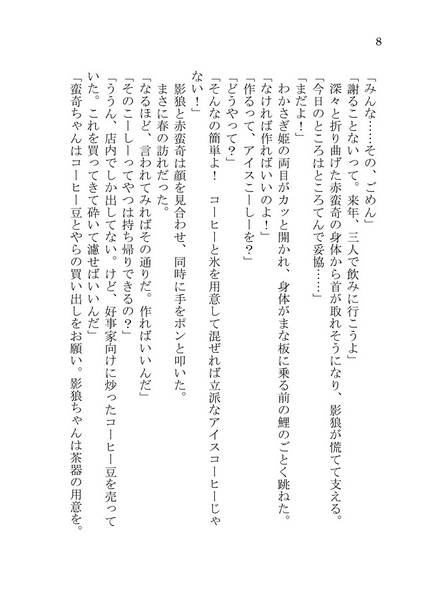 8
「みんな……その、ごめん」
「謝ることないって。来年、三人で飲みに行こうよ」
深々と折り曲げた赤蛮奇の身体から首が取れそうになり、影狼が慌てて支える。
「今日のところはところてんで妥協……」
「まだよ！」
わかさぎ姫の両目がカッと開かれ、身体がまな板に乗る前の鯉のごとく跳ねた。
「なければ作ればいいのよ！」
「作るって、アイスこーしーを？」
「どうやって？」
「そんなの簡単よ！　コーヒーと氷を用意して混ぜれば立派なアイスコーヒーじゃ
ない！」
影狼と赤蛮奇は顔を見合わせ、同時に手をポンと叩いた。
まさに春の訪れだった。
「なるほど、言われてみればその通りだ。作ればいいんだ」
「そのこーしーってやつは持ち帰りできるの？」
「ううん、店内でしか出してない。けど、好事家向けに炒ったコーヒー豆を売って
いた。これを買ってきて砕いて濾せばいいんだ」
「蛮奇ちゃんはコーヒー豆とやらの買い出しをお願い。影狼ちゃんは茶器の用意を。